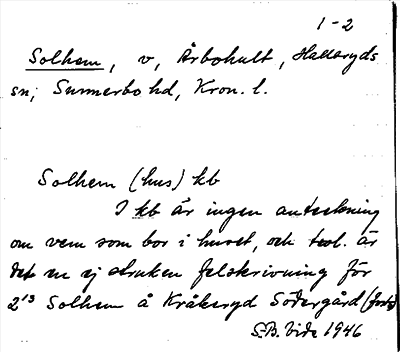 1-2
Solhem, v, Årbohult, Hallaryds
sn; Sunnerbo hd, Kron. l.
Solhem (hus) kb
I kb är ingen anteckning
om vem som bor i huset, och trol. är
det en ej struken felskrivning för
2¹³ Solhem å Kråkeryd Södergård (forts)
S.B. Vide 1946